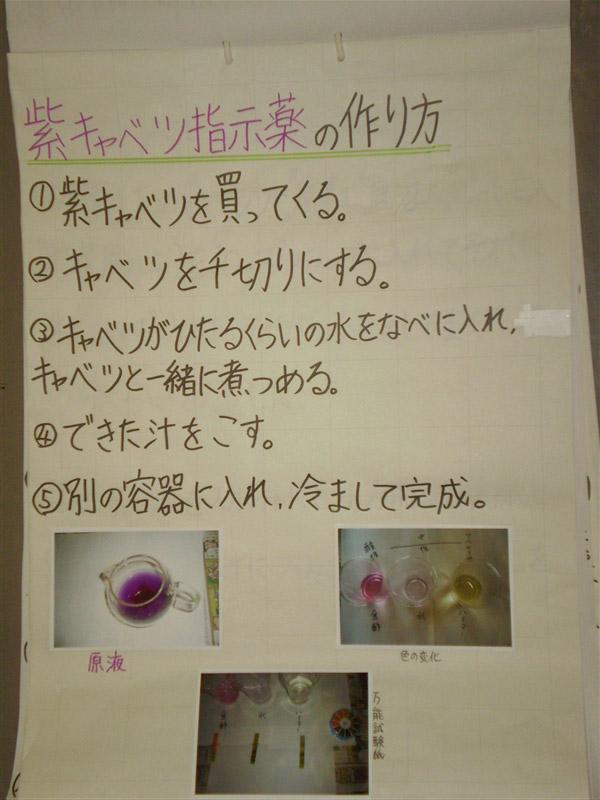 紫キャベツ指示薬の作り方
①紫キャベツを買ってくる。
②キャベツを千切りにする。
③キャベツがひたるくらいの水をなべに入れ,
キャベツと一緒に煮つめる。
④できた汁をこす。
⑤別の容器に入れ,冷まして完成。
原液
色の変化
万能試験紙